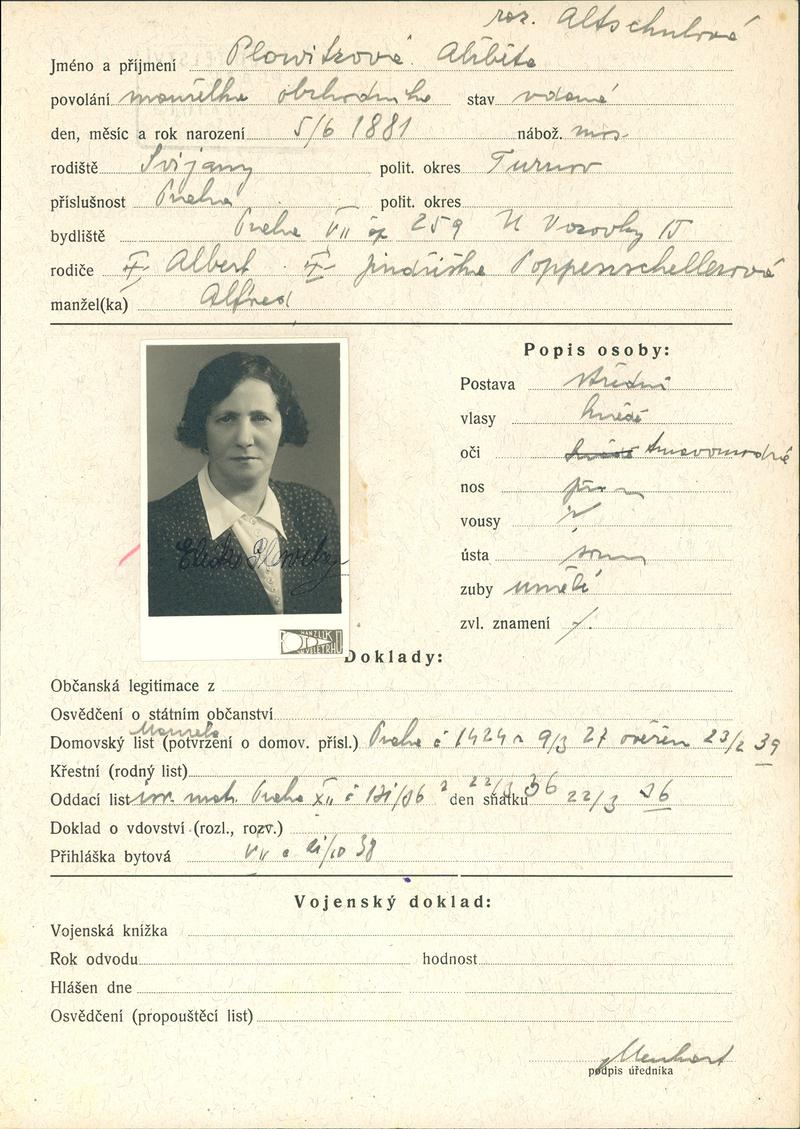 roz. Altschulová
Jméno a příjmení Plowitzová Alžběta
povolání manželka obchodníka stav vdaná
den, měsíc a rok narození 5/6 1881 nábož. mos.
rodiště Svijany polit. okres Turnov
příslušnost Praha polit. okres
bydliště Praha VII čp 259 U Vozovky 15
rodiče Albert Jindřiška Poppenschellerová
manžel(ka) Alfred
Popis osoby:
Postava střední
vlasy hnědé
oči hnědé tmavomodré
nos
vousy
ústa
zuby umělé
zvl. znamení
Doklady:
Občanská legitimace z
Osvědčení o státním občanství
manžela
Domovský list (potvrzení o domov. přísl.) Praha č 1424 9/3 27 ověřen 23/2 39
Křestní (rodný list)
Oddací list Praha XII č den sňatku 22/3 36
Doklad o vdovství (rozl., rozv.)
Přihláška bytová VII 38
Vojenský doklad:
Vojenská knížka
Rok odvodu hodnost
Hlášen dne
Osvědčení (propouštěcí list)
podpis úředníka